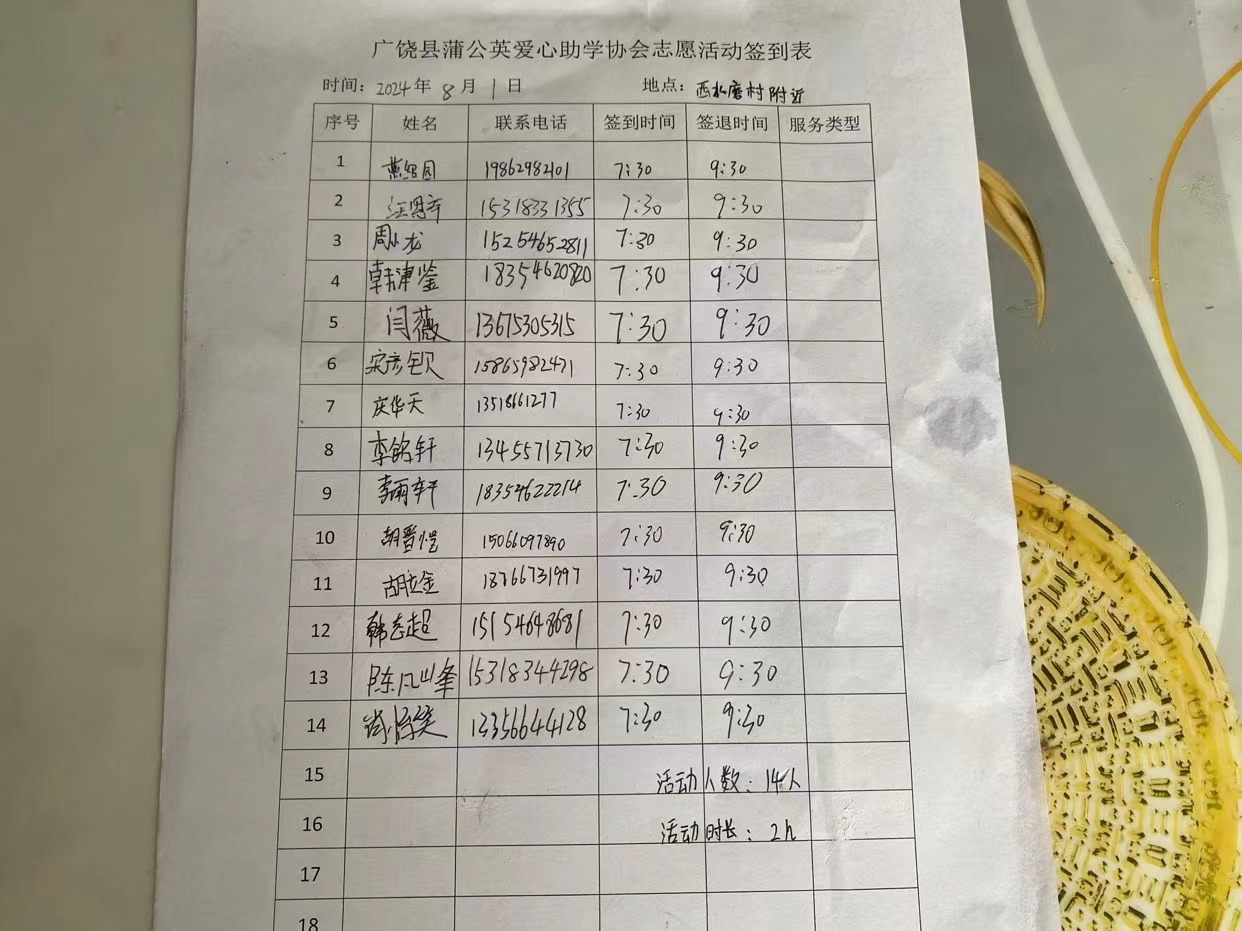 广饶县蒲公英爱心助学协会志愿活动签到表
时间：2024年 8月 1日 地点：西水磨村附近
序号 姓名 联系电话 签到时间 签退时间 服务类型
1 19862982101 7:30 9:30
2 15318331355 7:30 9:30
3 周小龙 15254652811 7:30 9:30
4 韩津鉴 18354620820 7:30 9:30
5 闫薇 13675305315 7:30 9:30
6 15865982471 7:30 9:30
7 庆华天 13518661277 7:30 9:30
8 李铭轩 13455713730 7:30 9:30
9 李雨轩 18354622214 7:30 9:30
10 胡晋恺 15066097890 7:30 9:30
11 胡立金 18766731997 7:30 9:30
12 韩志超 15154648681 7:30 9:30
13 陈凡峰 15318344298 7:30 9:30
14 13356644128 7:30 9:30
15 活动人数：14人
16 活动时长：2h
17
18